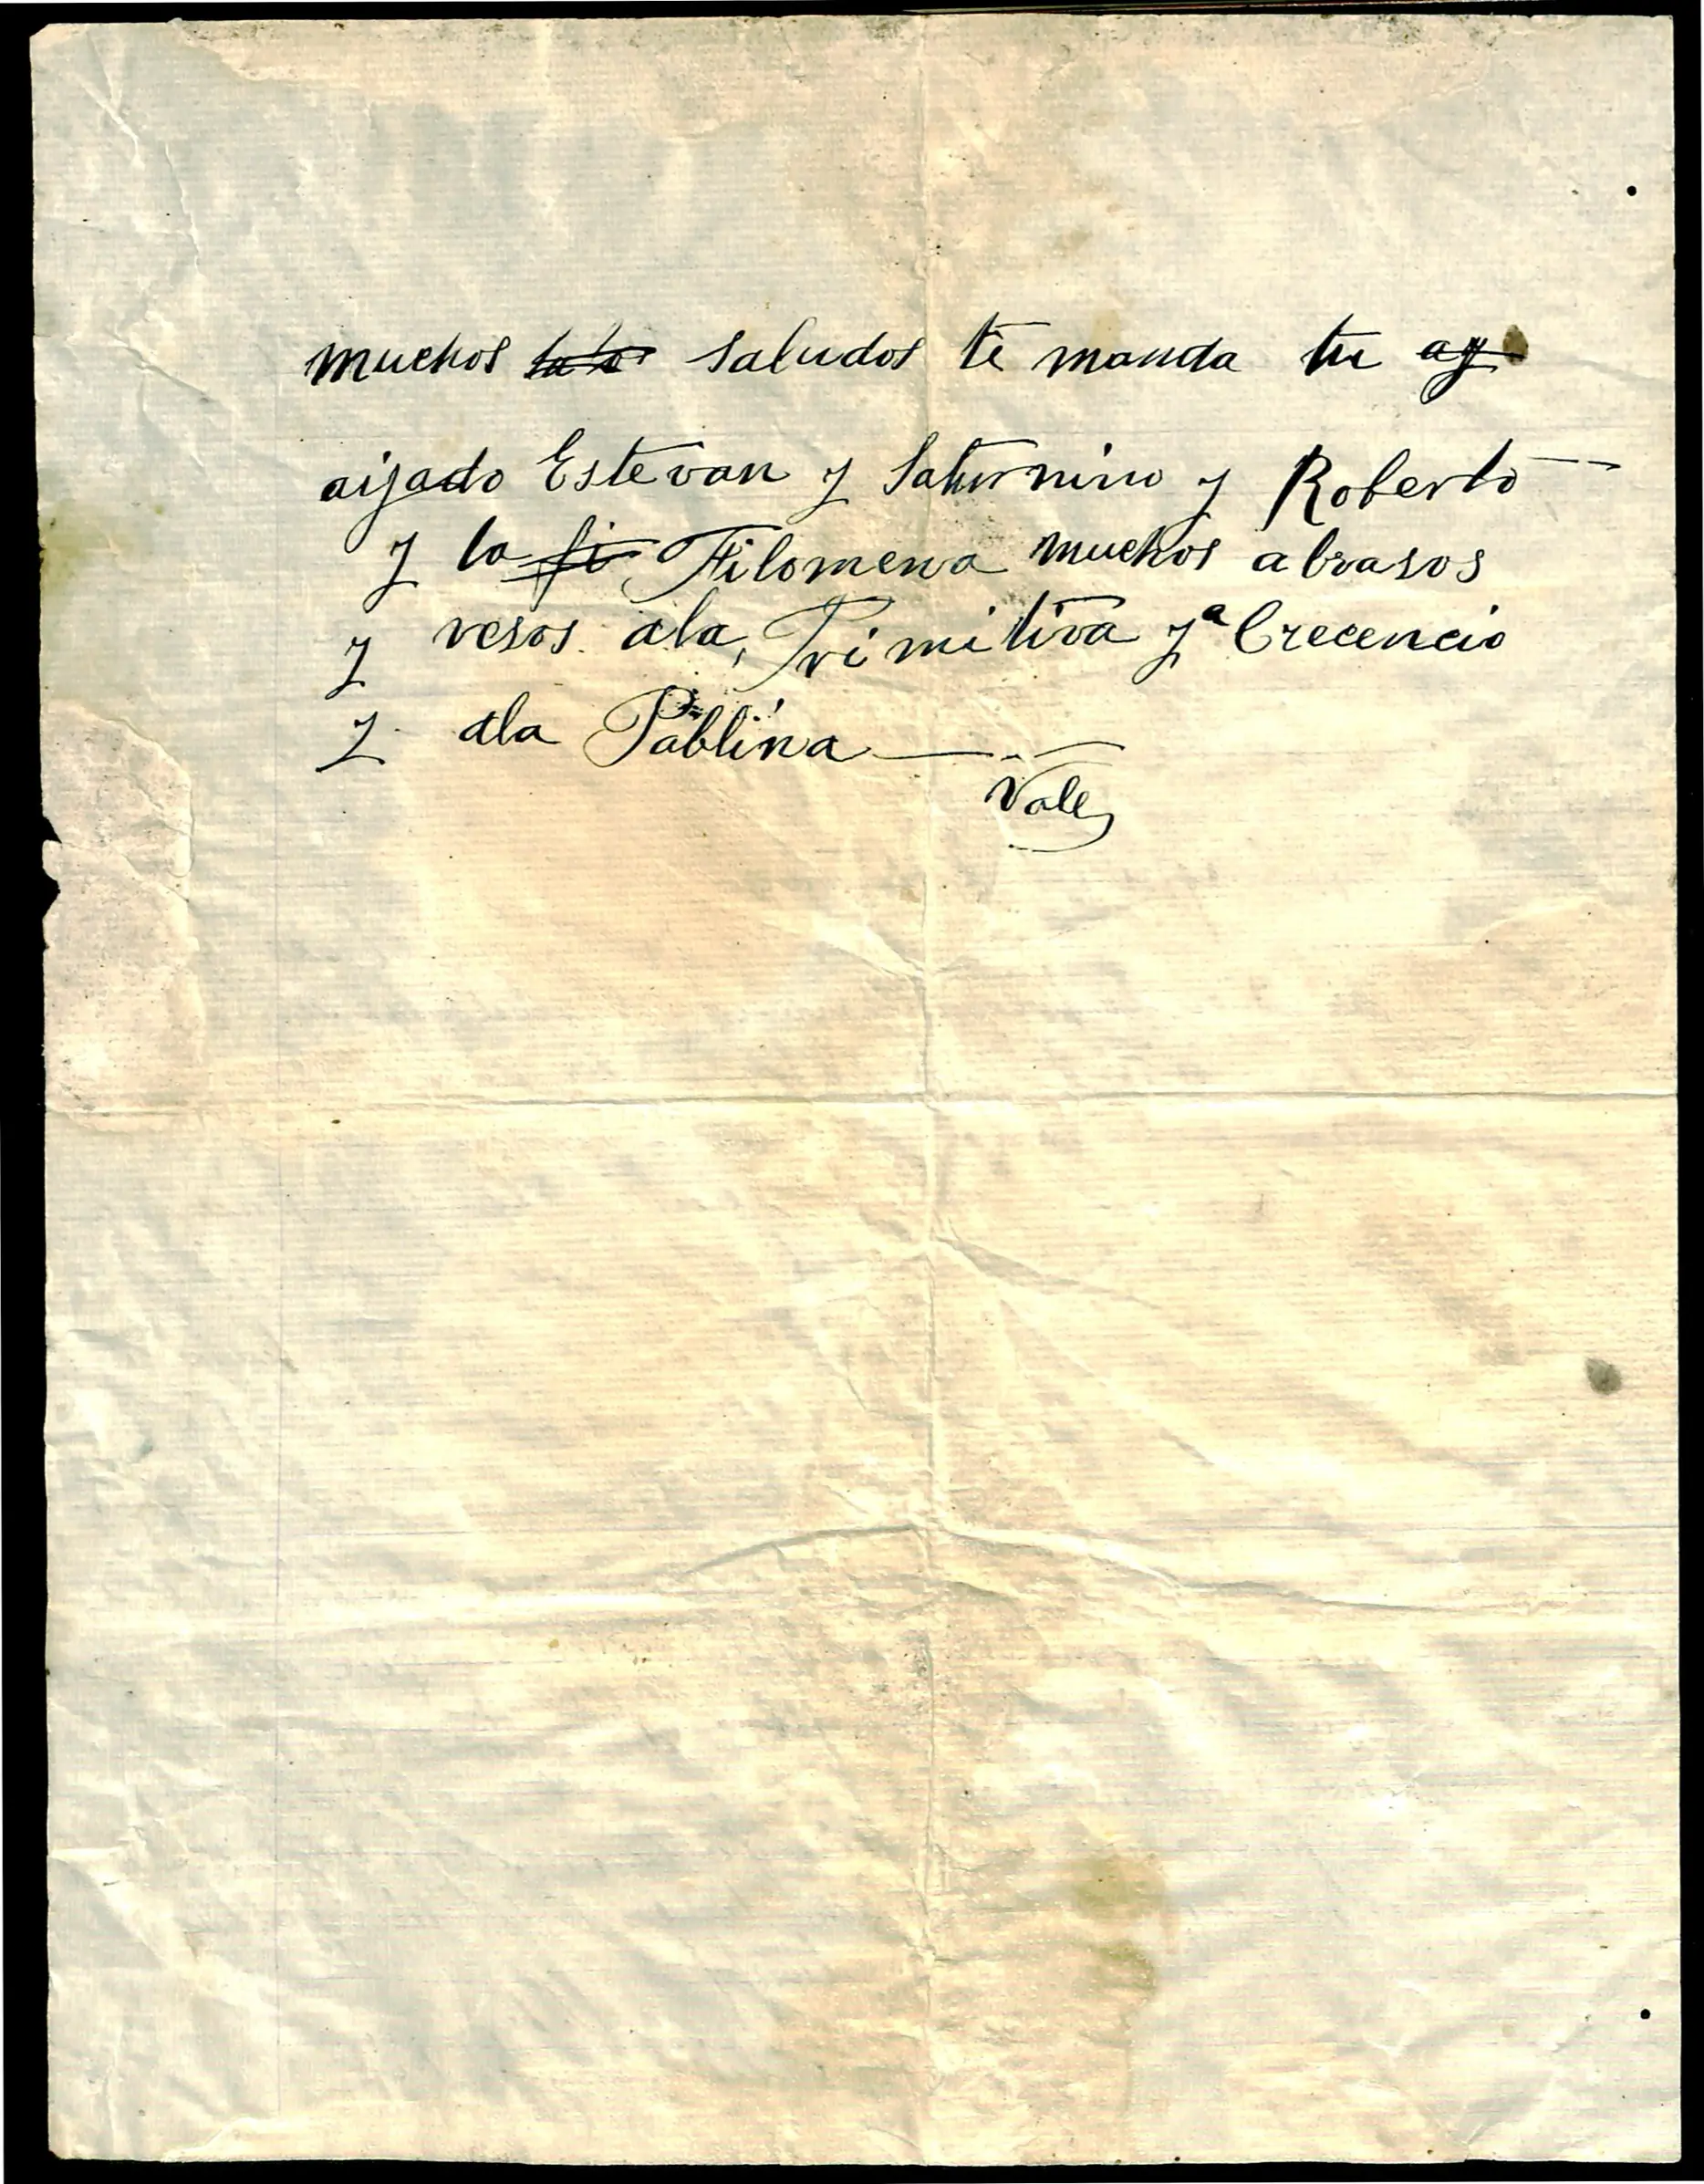 muchos saludos te manda tu
aijado Estevan y Saturnino y Roberto
y la Filomena muchos abrasos
y vesos ala Primitiva y a Crecencio
y ala Pablina
Vale